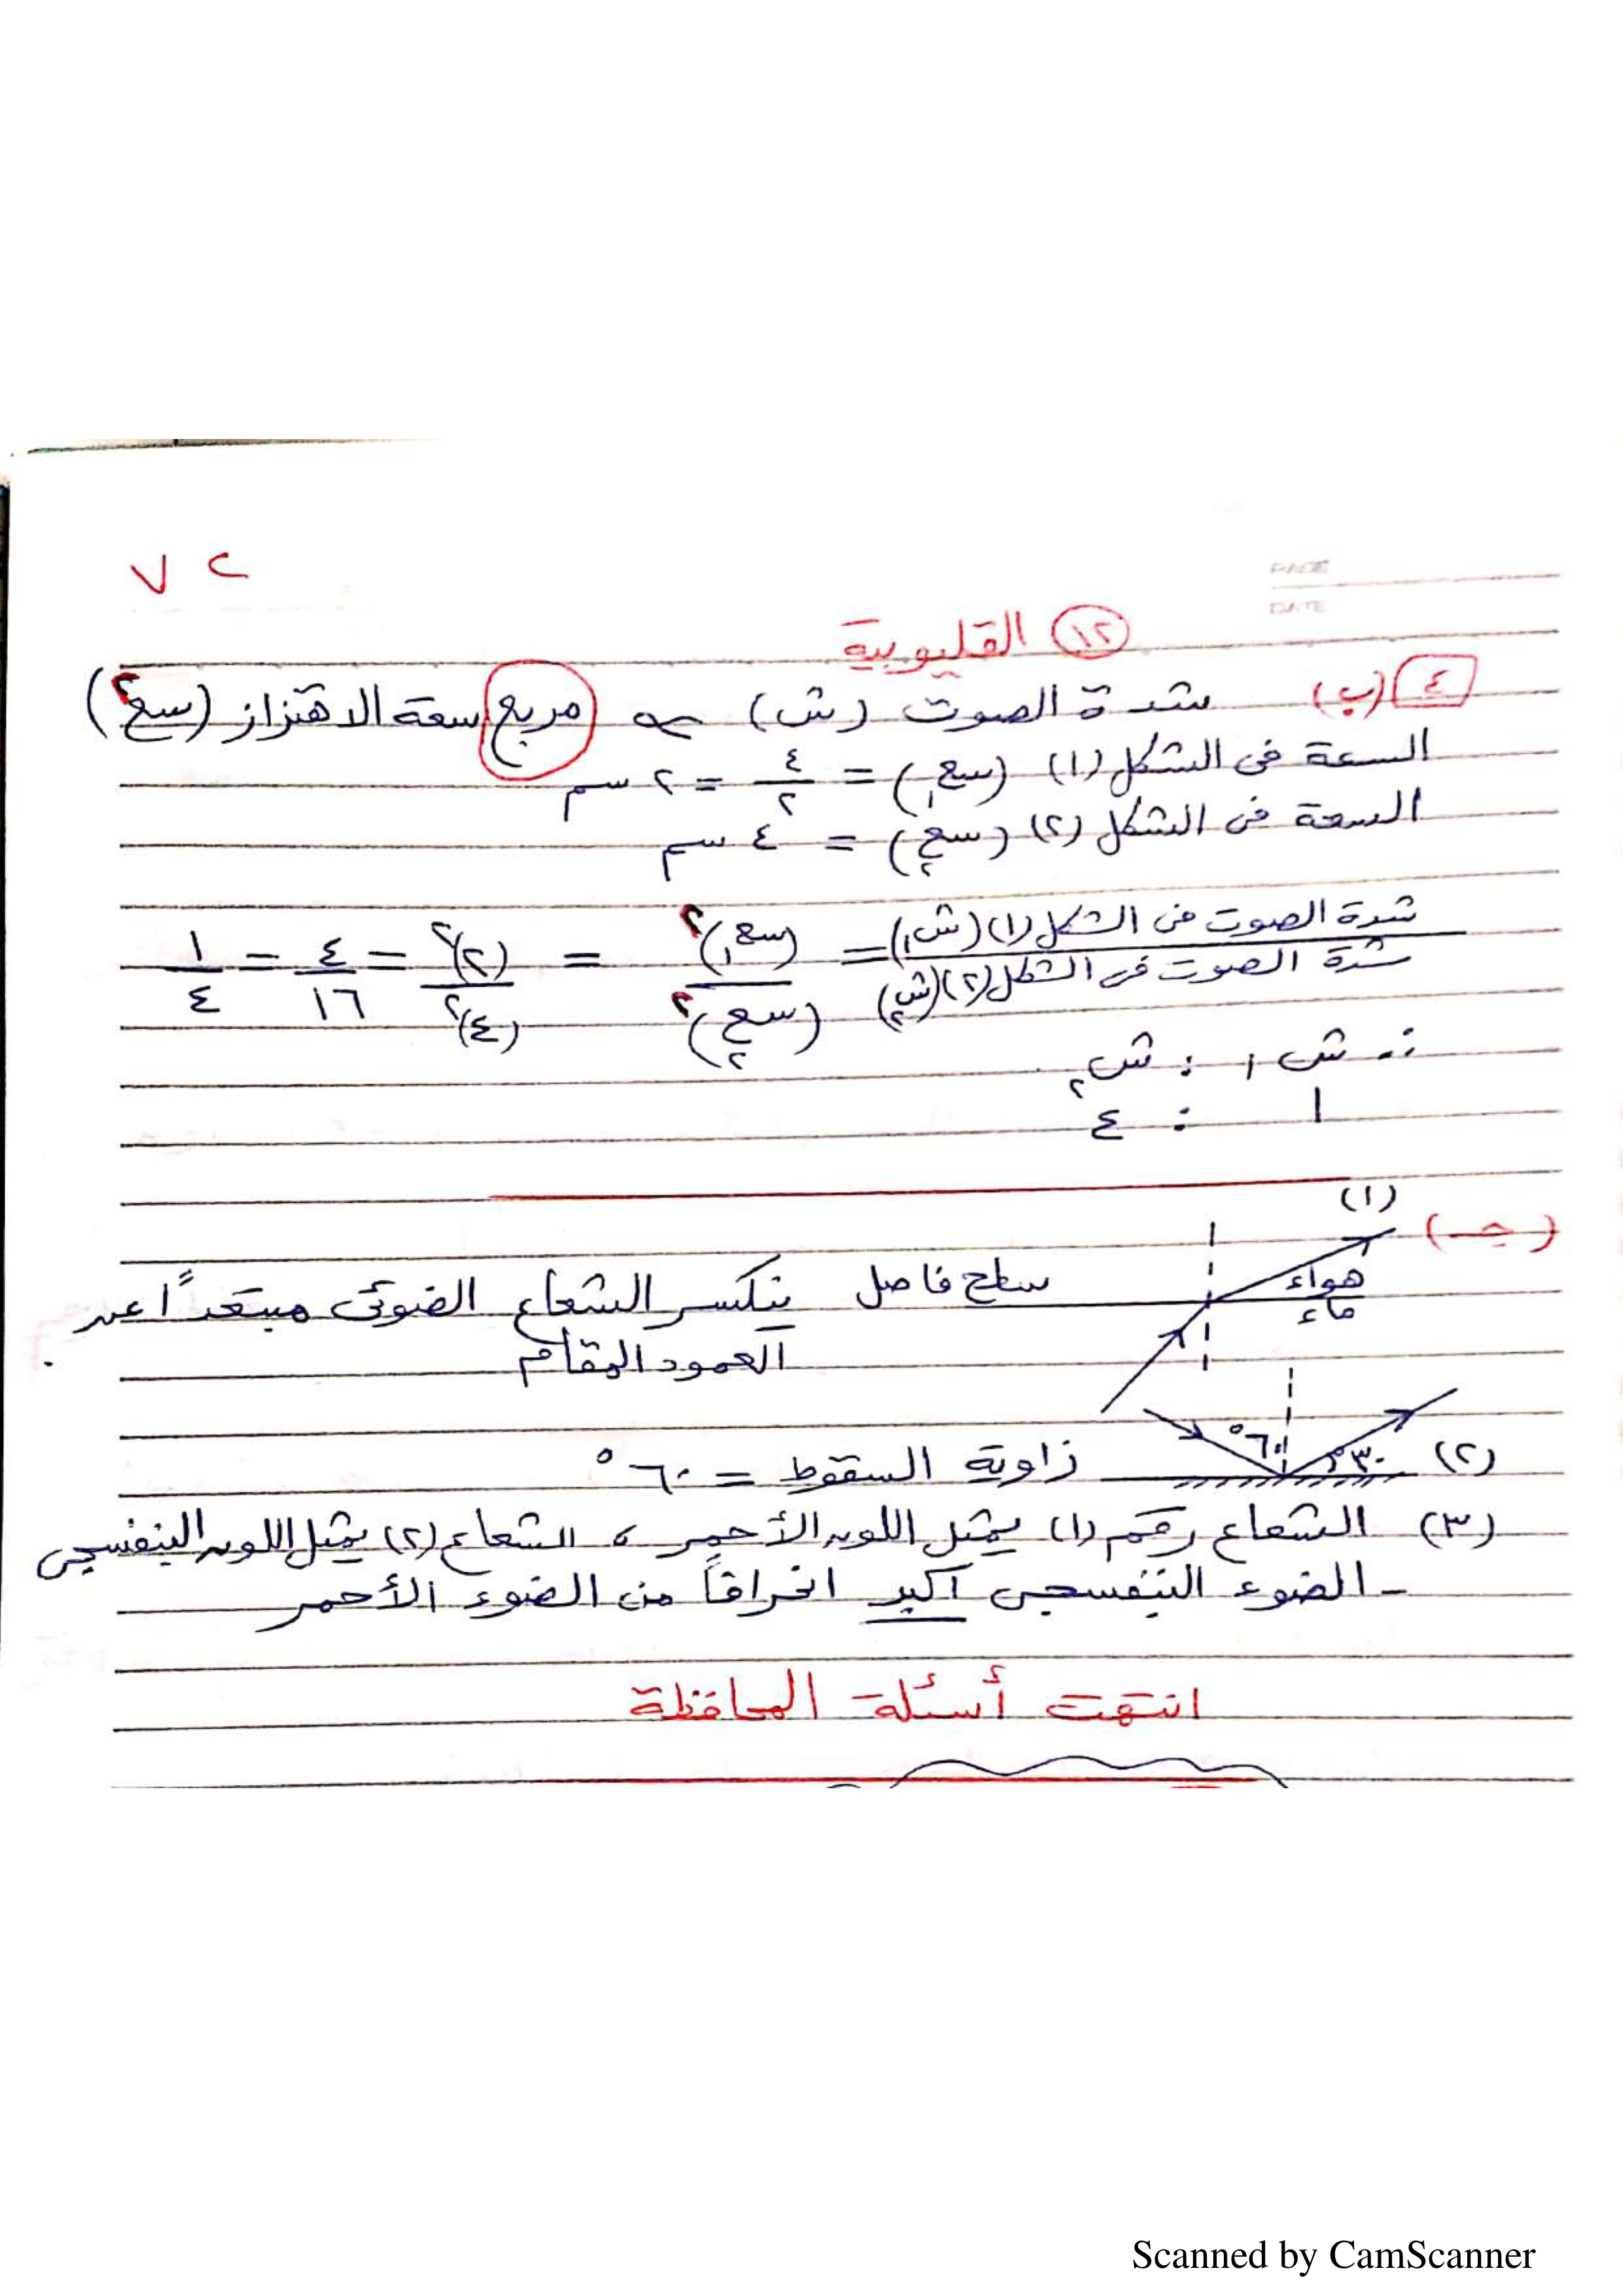 ٢٧
PAGE
DATE
١٢ القليوبية
٤ (ب) شدة الصوت (ش) ∝ مربع سعة الاهتزاز (سع٢)
السعة فى الشكل (١) (سع١) = ٤/٢ = ٢ سم
السعة فى الشكل (٢) (سع٢) = ٤ سم
شدة الصوت فى الشكل (١) (ش١) / شدة الصوت فى الشكل (٢) (ش٢) = (سع١)٢ / (سع٢)٢ = (٢)٢ / (٤)٢ = ٤/١٦ = ١/٤
∴ ش١ : ش٢
١ : ٤
(جـ)
(١) هواء
ماء
سطح فاصل ينكسر الشعاع الضوئى مبتعداً عن
العمود المقام
(٢) ٣٠° ٦٠° زاوية السقوط = ٦٠°
(٣) الشعاع رقم (١) يمثل اللون الأحمر ، الشعاع (٢) يمثل اللون البنفسجى
- الضوء البنفسجى أكبر انحرافاً من الضوء الأحمر
انتهت أسئلة المحافظة
Scanned by CamScanner